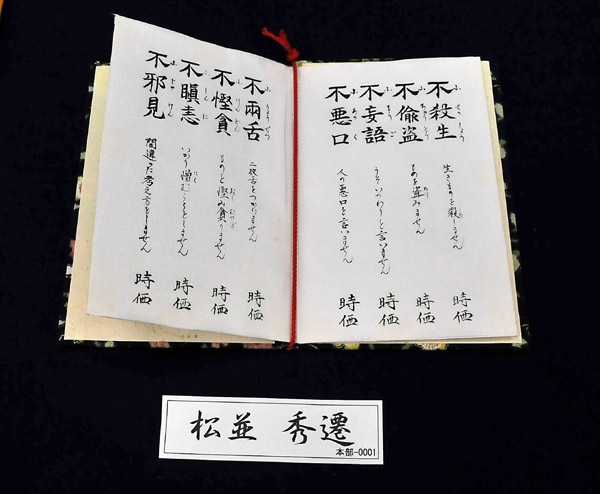 不殺生 生きものを殺しません 時価
不偸盗 ものを盗みません 時価
不妄語 うそいつわりを言いません 時価
不悪口 人の悪口を言いません 時価
不兩舌 二枚舌をつかいません 時価
不慳貪 ものを慳み貪りません 時価
不瞋恚 いかり憎むことをしません 時価
不邪見 間違った考え方をしません 時価
松並 秀遷
本部-0001